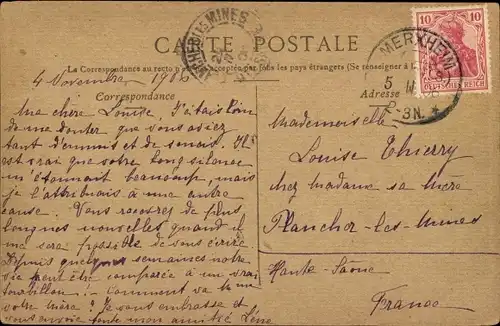 CARTE POSTALE
La Correspondance au recto n'est pas acceptée par tous les pays étrangers (Se renseigner à
Correspondance
Adresse
MERXHEIM
5
2-3N. *
MINES
10 10
DEUTSCHES REICH
4 Novembre 1906
Ma chère Louise, J'étais loin
de me douter que vous aviez
tant d'ennuis et de soucis. Il
est vrai que votre long silence
m'étonnait beaucoup, mais
je l'attribuais à une autre
cause. Vous recevrez de plus
longues nouvelles quand il
me sera possible de vous écrire
Depuis quelques semaines notre
vie peut être comparée à un vrai
tourbillon. Comment va la
votre chère? Je vous embrasse et
vous envoie toute mon amitié Léne
Mademoiselle
Louise Thierry
chez Madame sa Mère
Plancher-les-Mines
Haute-Saône
France